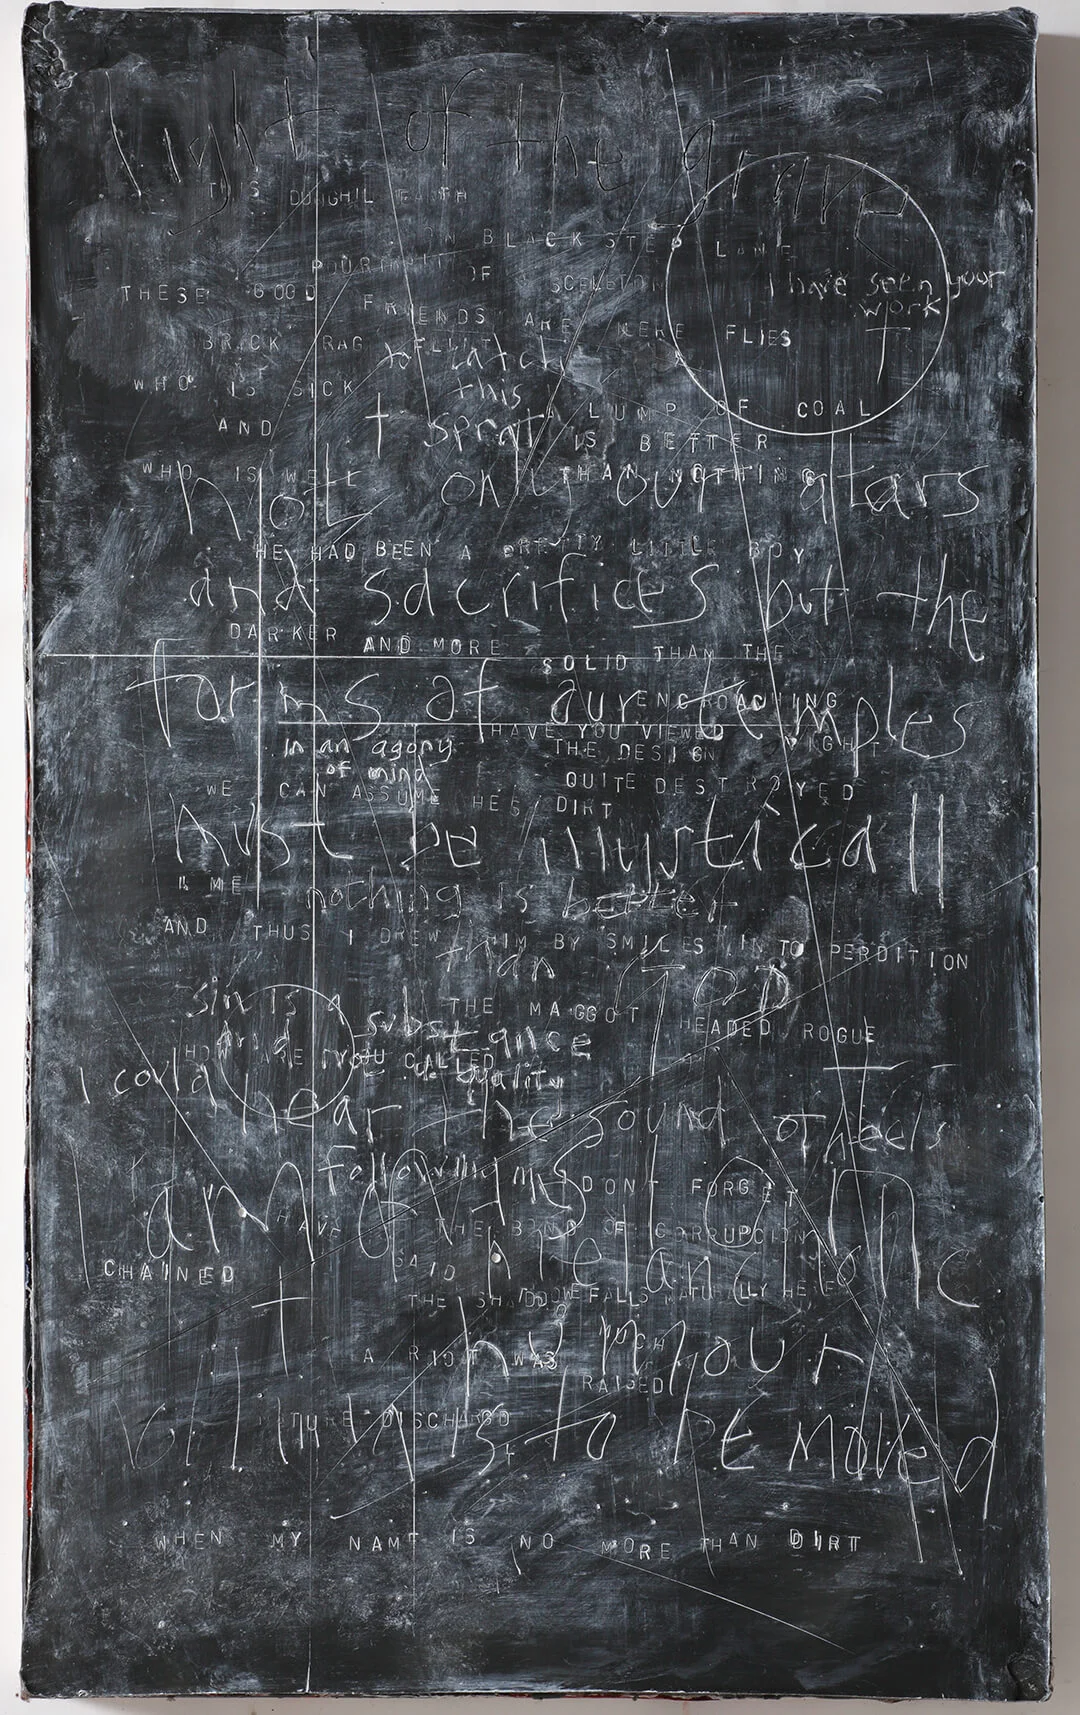 light of the grave
THIS DUNGHIL EARTH
ON BLACK STEP LANE
OF SCELETON
I have seen your
work
THESE GOOD FRIENDS ARE MERE FLIES
BRICK RAG FLINT
to catch
this
WHO IS SICK
sprat
A LUMP OF COAL
AND
IS BETTER
WHO IS WELL
THAN NOTHING
not only our altars
HE HAD BEEN A PRETTY LITTLE BOY
and sacrifices but the
DARKER AND MORE SOLID THAN THE
forms of our temples
ENCROACHING
NIGHT
HAVE YOU VIEWED
THE DESIGN
in an agony
of mind
QUITE DESTROYED
WE CAN ASSUME HEE DIRT
must be mysticall
ME
nothing is better
AND THUS I DREW HIM BY SMILES IN TO PERDITION
than GOD
sin is a
substance
and not a quality
THE MAGGOT HEADED ROGUE
HOW ARE YOU CALLED
I could hear the sound of heels
following me
DONT FORGET
I am of
HAVE THE BOND OF CORRUPCION
CHAINED
SAID
melancholic
THE SHADDOWE FALLS NATURALLY HERE
humour
A RIOT WAS
RAISED
DISCHARGD
to be moved
WHEN MY NAME IS NO MORE THAN DIRT